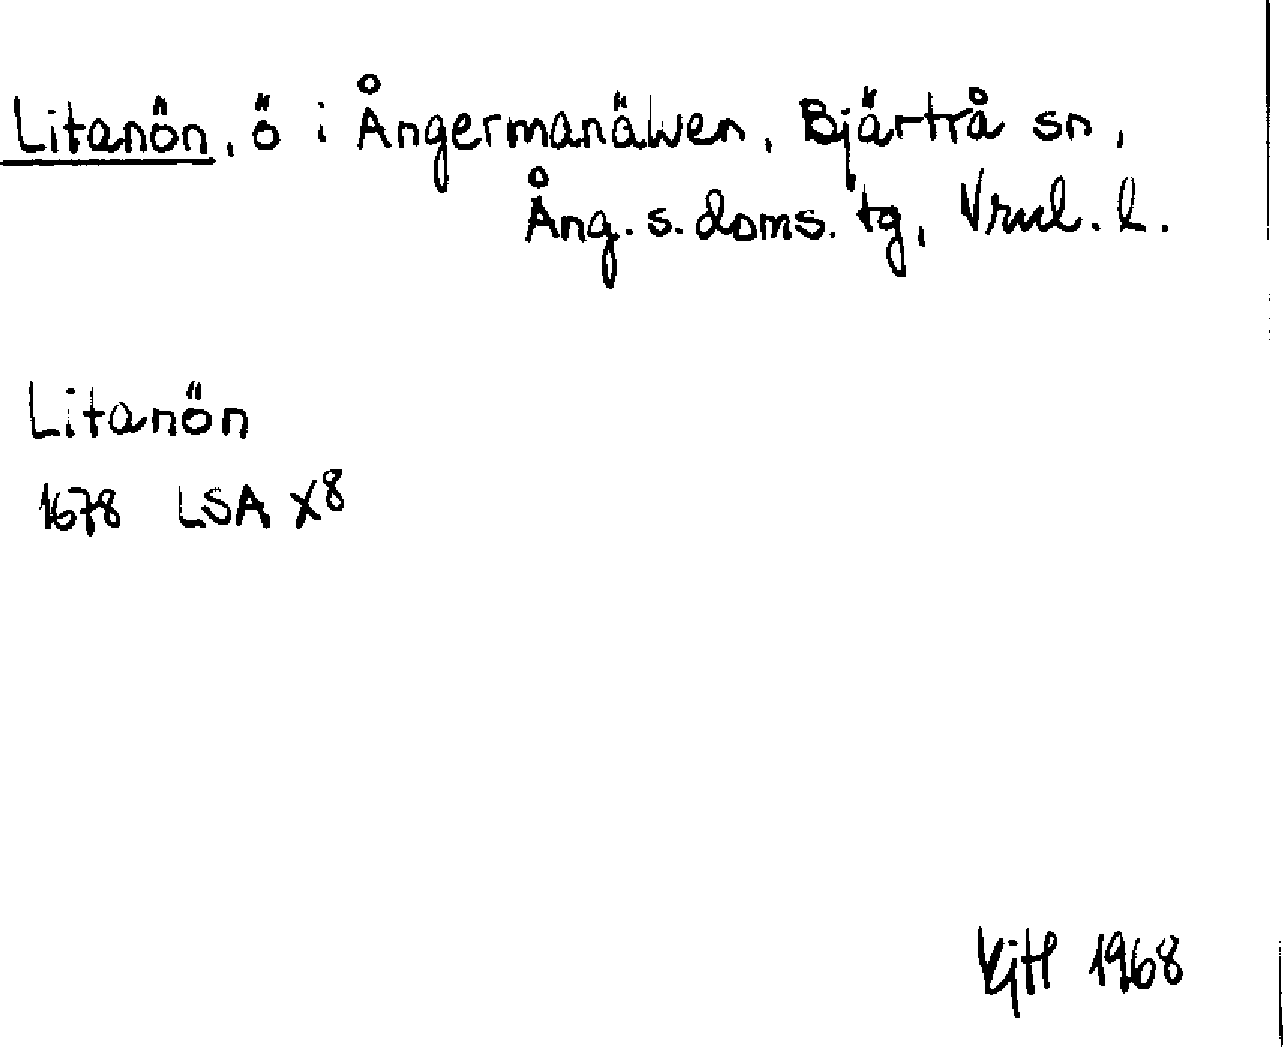 Litanön, ö i Ångermanälven, Bjärtrå sn,
Ång. s. doms. tg, Vrnl. l.
Litanön
1678 LSA X8
1968